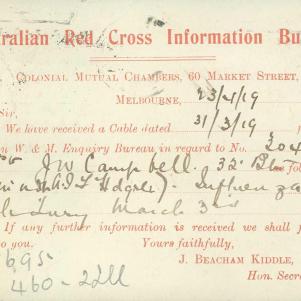 ralian Red Cross Information Bu
Colonial Mutual Chambers, 60 Market Street,
Melbourne, 23/4/19
Sir,
We have received a Cable dated 31/3/19
n W. & M. Enquiry Bureau in regard to No. 204
J W Campbell. 32 Btn fo
A.I.F Hdqrs). Influenza
March 3rd
If any further information is received we shall f
to you. Yours faithfully,
J. BEACHAM KIDDLE,
Hon. Secre
695
460-22ll